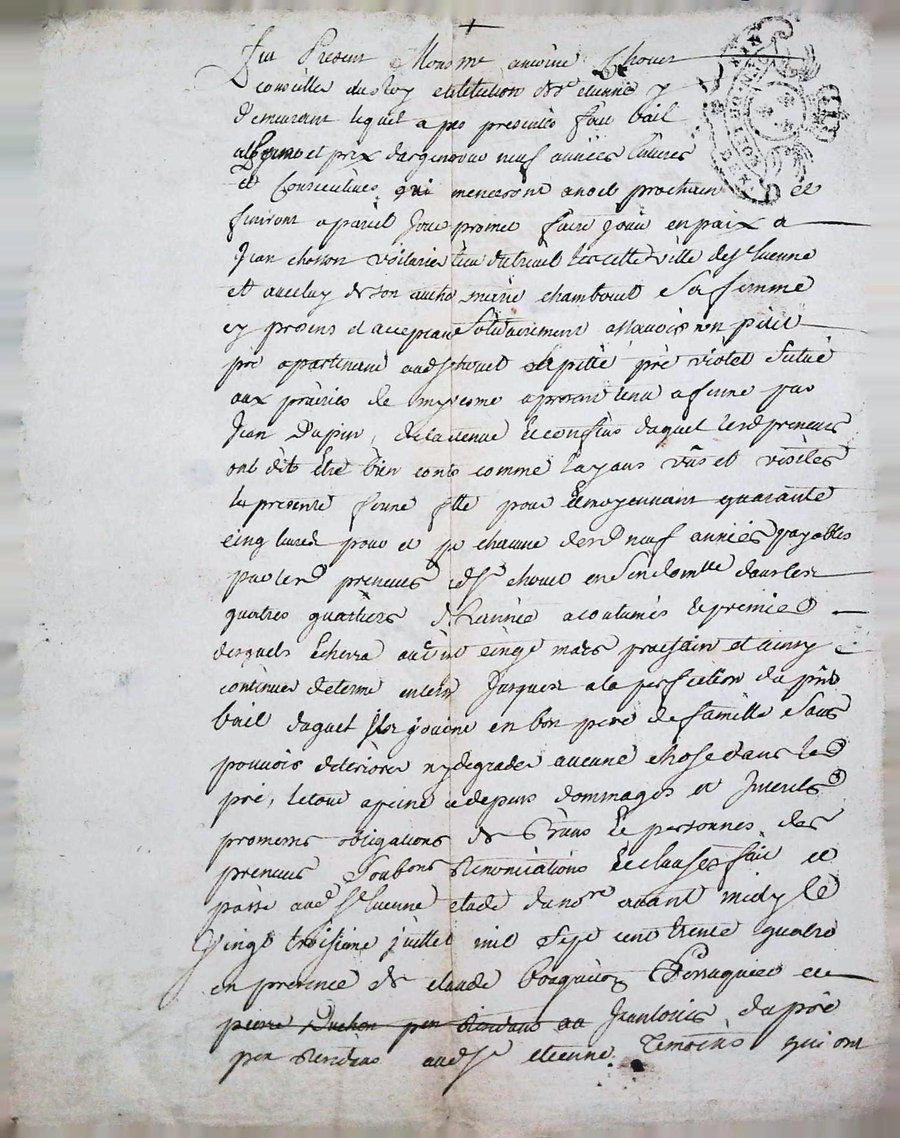 Fut Present Monsr antoine Thouet
conseiller du Roy en l'élection de St etienne y
demeurant lequel a peu presentés fait bail
a ferme et prix d'argent pour neuf années entieres
et Consecutives qui menceront a noel prochain et
finiront a pareil Jour promet faire jouir en paix a
Jean chosson voiturier de cette ville de St Etienne
et avec luy de son autho marie chambouet sa femme
cy presens et acceptant solidairement assavoir un petit
pré apartenant aud Sr thouet apellé pré violet situé
aux prairies de a present tenu a ferme par
Jean Dupin, de la tenue et confins duquel lesd preneurs
ont dits Etre bien conts comme layant vus et visités
la presente ferme fte pour et moyennant quarante
cinq livres pour et pr chacune desd neuf années payables
par lesd preneurs aud Sr thouet en son domlle dans les
quatres quartiers de L'année acoutumés le premier
desquels Echerra au vingt cinqe mars prochain et ainsy
continuer de terme en terme Jusques a la perfection du pnt
bail duquel ils jouiront en bon pere de famille sans
pouvoir deteriorer ny degrader aucune chose dans led
pré, le tout a peine de depens dommages et Interets
promesses obligations de biens et personnes des
preneurs soubons Renonciations et clauses fait et
passé aud St Etienne etude du nore avant midy le
vingt troisieme juillet mil sept cent trente quatre
en presence de claude Perruquier et
pierre Duchon pen Residant au Jean Louis dupré
pen Residens aud St etienne Temoins qui ont